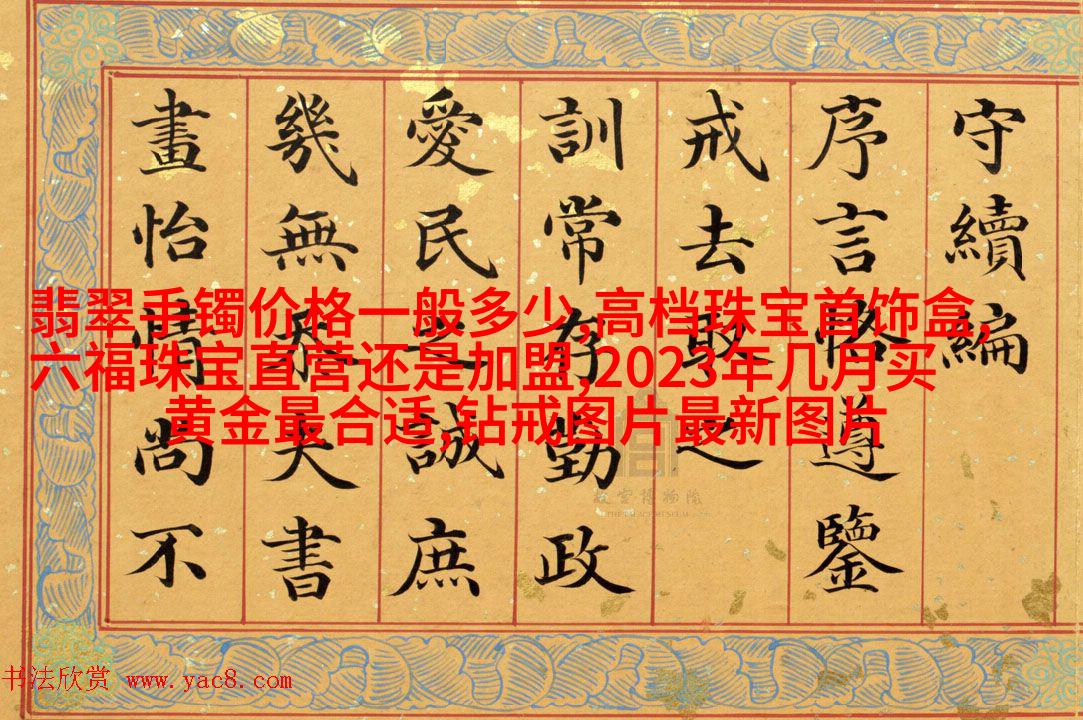 守續編
序言恪遵鑒
戒去之
訓常存勤政
愛民之誠庶
幾無忝夫書
畫怡情尚不
翡翠手镯价格一般多少,高档珠宝首饰盒,
六福珠宝直营还是加盟,2023年几月买
黄金最合适,钻戒图片最新图片
故宫博物院
THE PALACE MUSEUM
书法欣赏 www.yac8.com